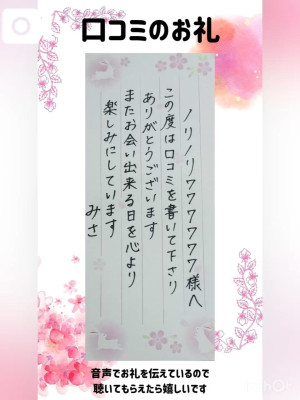 口コミのお礼
ノリノリワワワワワワ様へ
この度は口コミを書いて下さり
ありがとうございます
またお会い出来る日を心より
楽しみにしています
みさ
音声でお礼を伝えているので
聴いてもらえたら嬉しいです